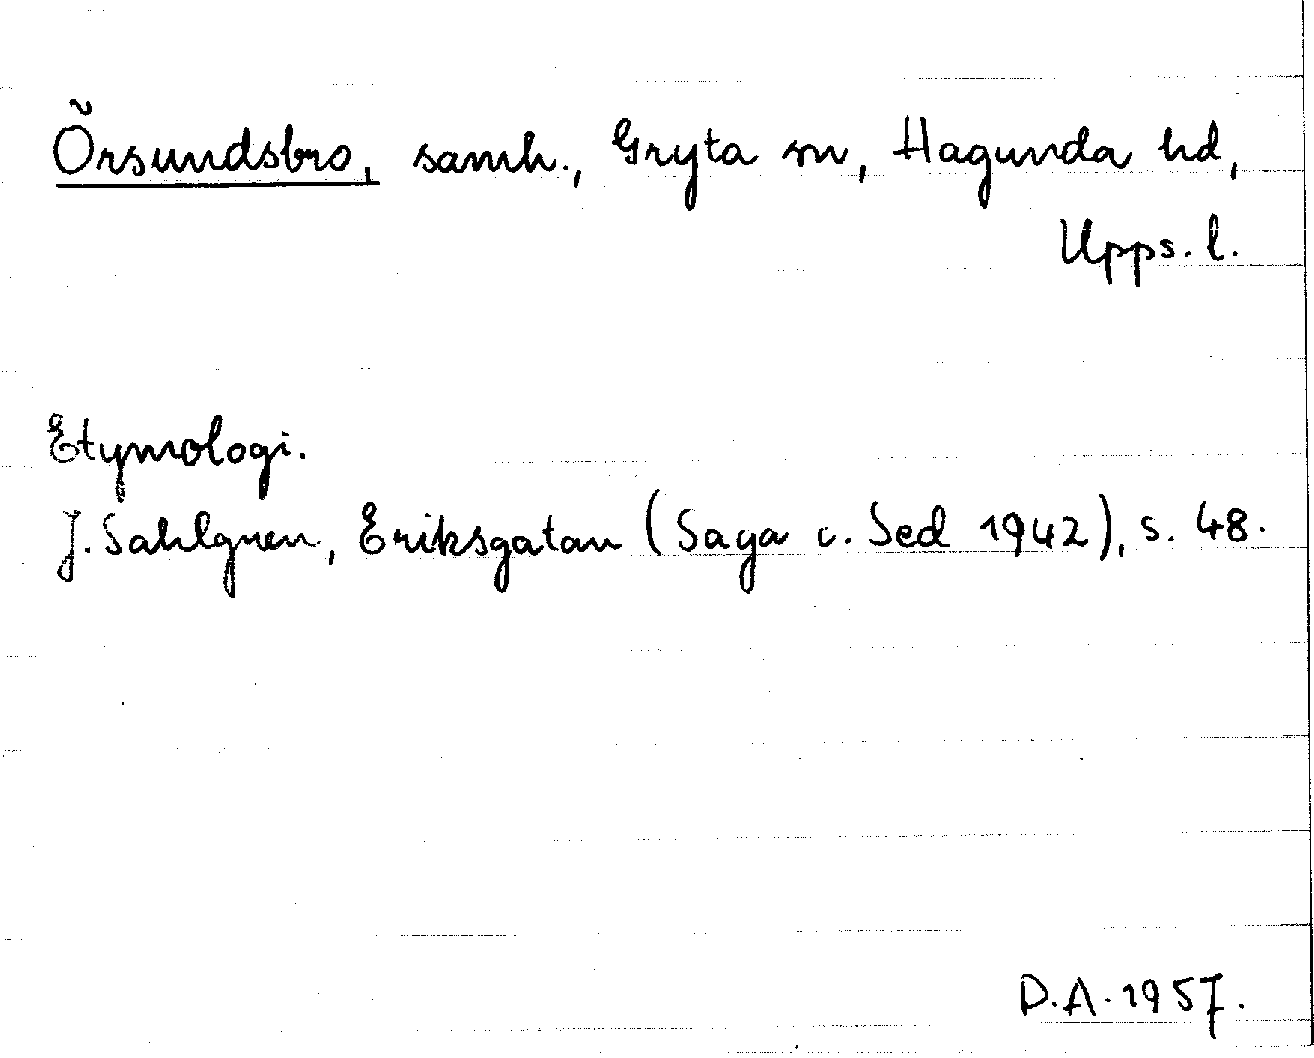 Örsundsbro, samh., Gryta sn, Hagunda hd,
Upps. l.
Etymologi.
J. Sahlgren, Eriksgatan (Saga o. Sed 1942), s. 48.
D.A. 1957.